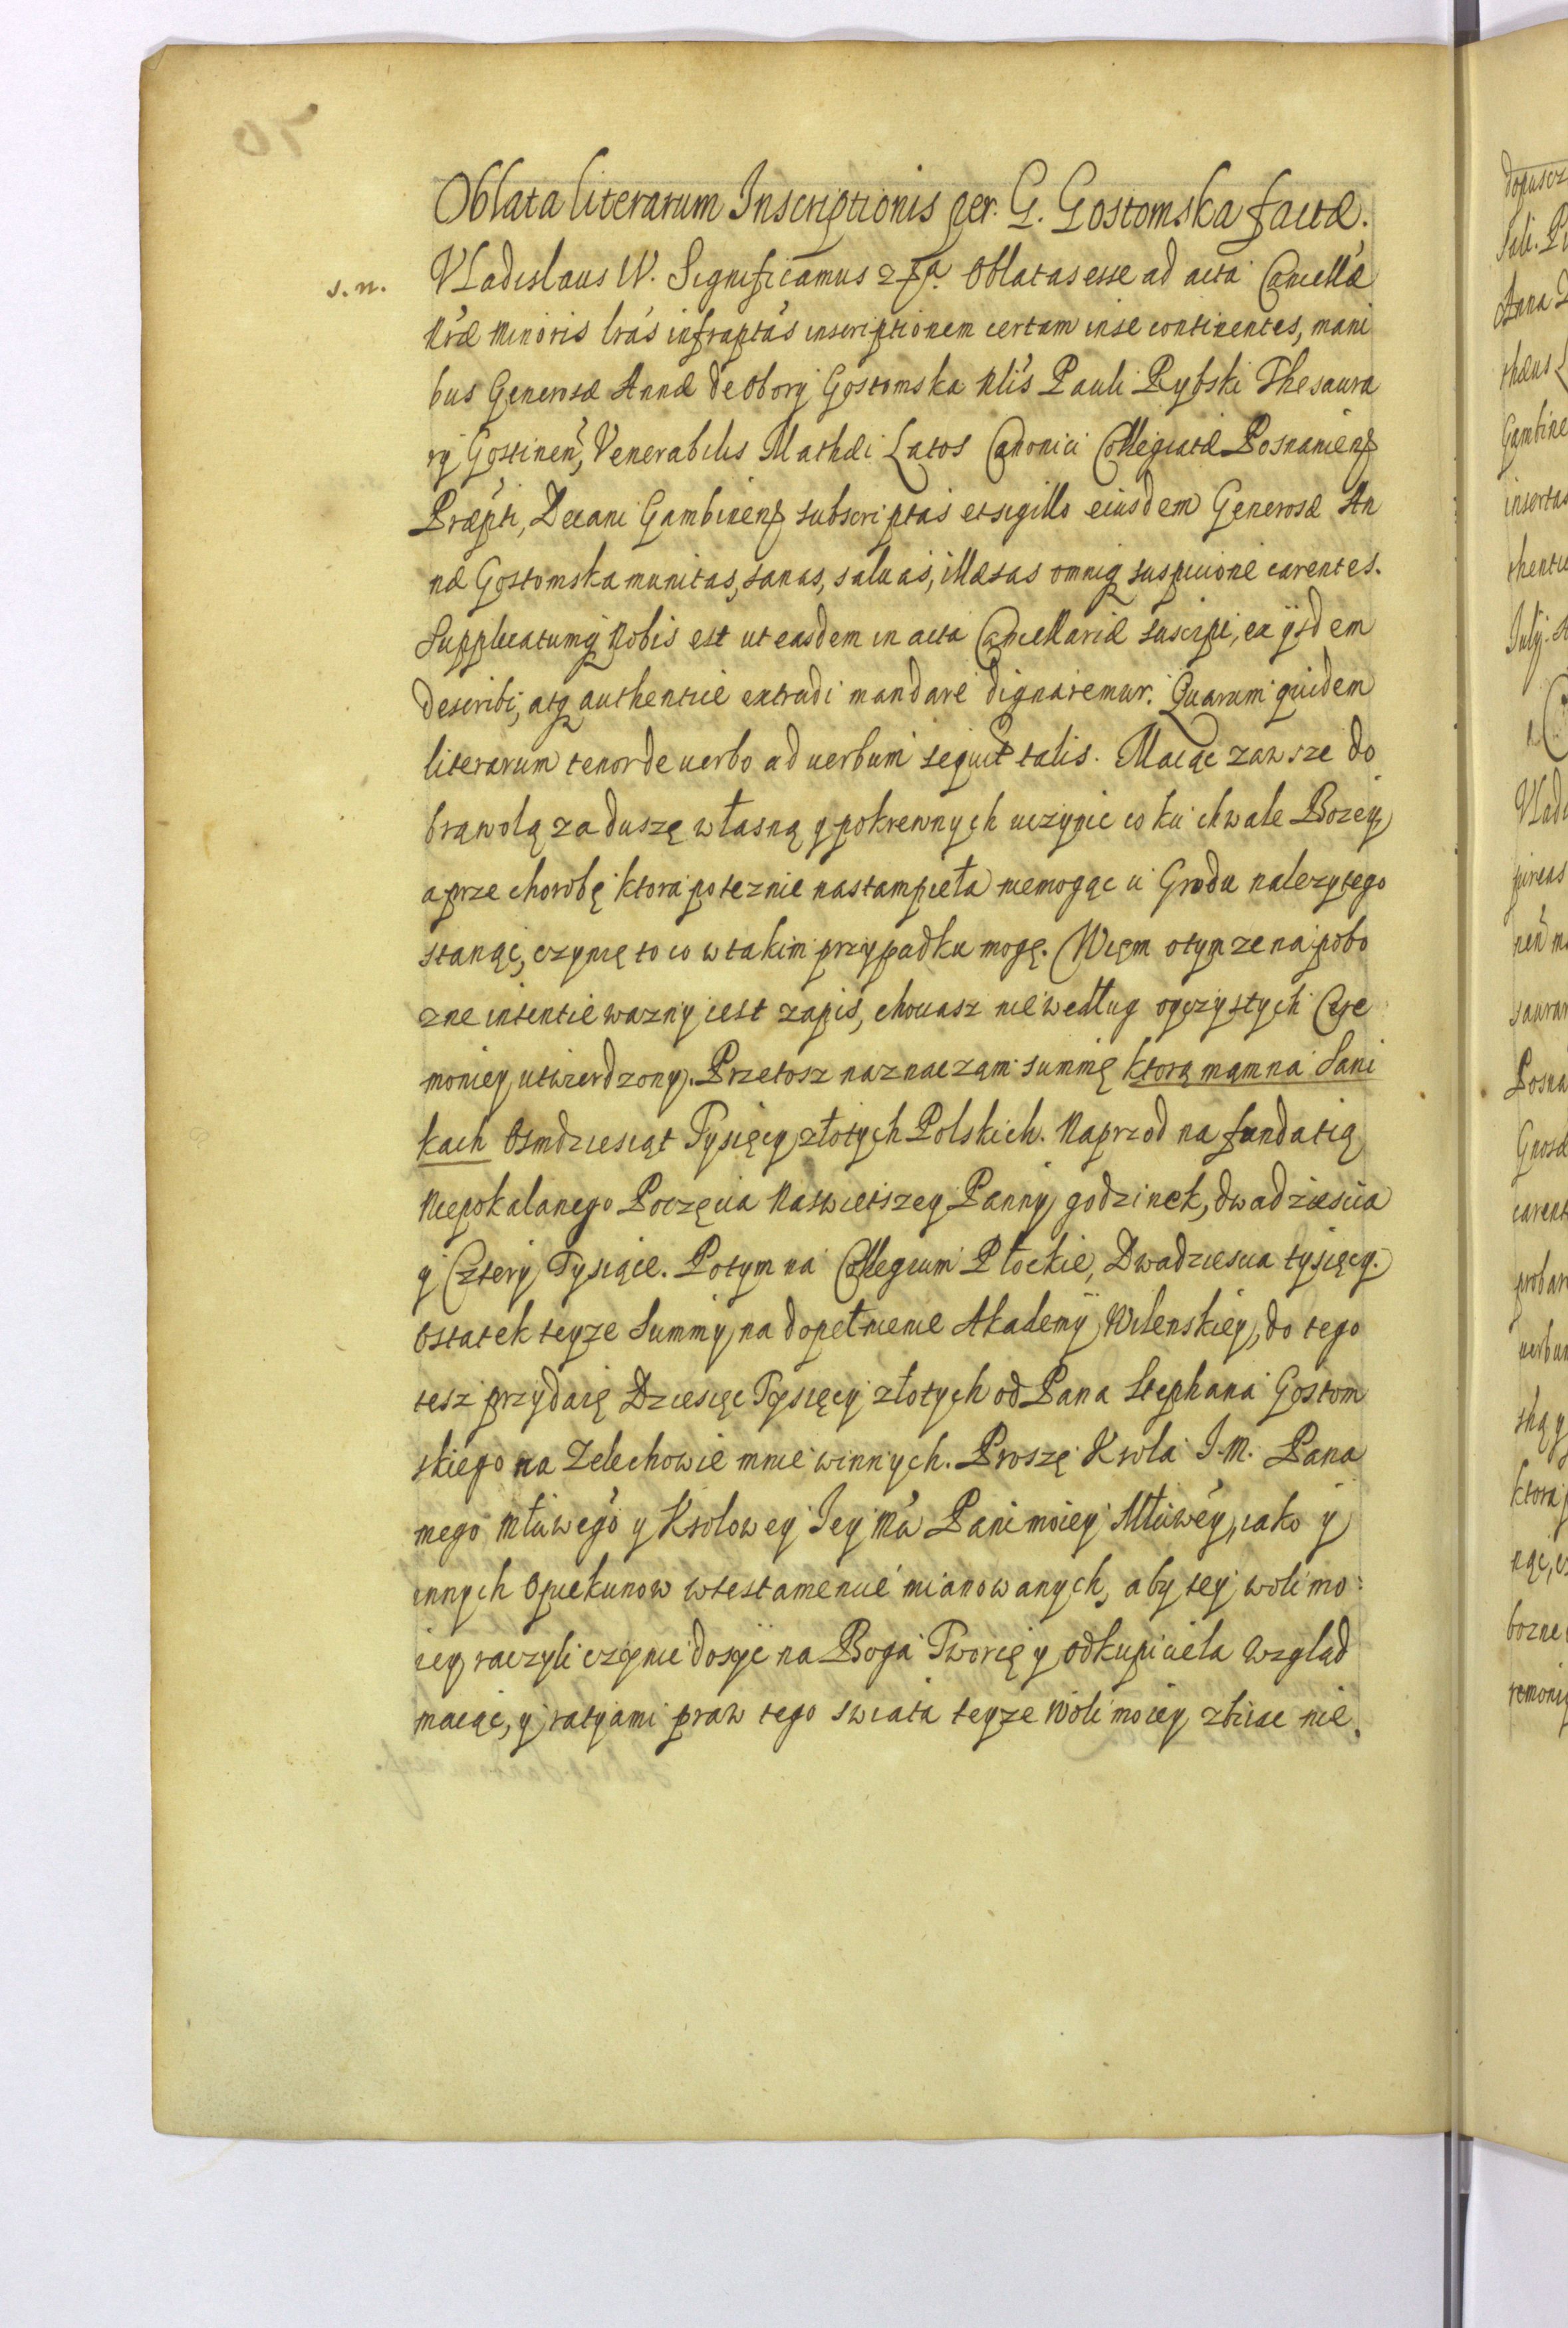 Oblata literarum Inscriptionis per. G. Gostomska factæ.
s. n.
Vladislaus IV. Significamus &. Oblatas esse ad acta Cancellæ
Nræ Minoris lras infraptas inscriptionem certam in se continentes, mani
bus Generosæ Annæ de Obory Gostomska Nlis Pauli Rybski Thesaura
ry Gostinen, Venerabilis Mathæi Latos Canonici Collegiatæ Posnaniens
Præpti, Decani Gambinens subscriptas et sigillo eiusdem Generosæ An
næ Gostomska munitas, sanas, saluas, illæsas omniq suspicione carentes.
Supplicatumq Nobis est ut easdem in acta Cancellariæ suscipi, ex ijsdem
describi, atq authentice extradi mandare dignaremur. Quarum quidem
literarum tenor de uerbo ad uerbum sequit talis. Maiąc zawsze do
brąwolą za duszę własną y pokrewnych uczynic co ku chwale Bozey,
a prze chorobę ktora poteznie nastampieła niemogąc u Grodu nalezytego
stanąc, czynię to co w takim przypadku mogę. Wiem o tym ze na pobo
zne intentie wazny iest zapis, chociasz nie według oyczystych Cere
moniey utwierdzony. Przetosz naznaczam summę ktorą mam na Sani
kach Osmdziesiąt Tysięcy złotych Polskich. Naprzod na fundatią
Niepokalanego Poczęcia Naswietszey Panny godzinek, dwadziescia
y Cztery Tysiące. Potym na Collegium Płockie, Dwadziescia tysięcy.
Ostatek teyze Summy na dopełnienie Akademÿ Wilenskiey, do tego
tesz przydaię Dziesięc Tysięcy złotych od Pana Stephana Gostom
skiego na Zelechowie mnie winnych. Proszę Krola J. M. Pana
mego Młciwego y Krolowey Jey Mci Pani moiey Młciwey, iako y
innych Opiekunow w testamencie mianowanych, aby tey woli mo:
iey raczyli czynic dosyc na Boga Tworcę y odkupiciela Wzgląd
maiąc, y ratyami praw tego swiata teyze Woli moiey zbiiac nie